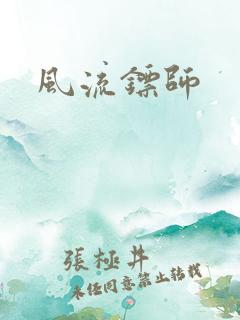 風流鏢師
張極井
未經同意禁止轉載